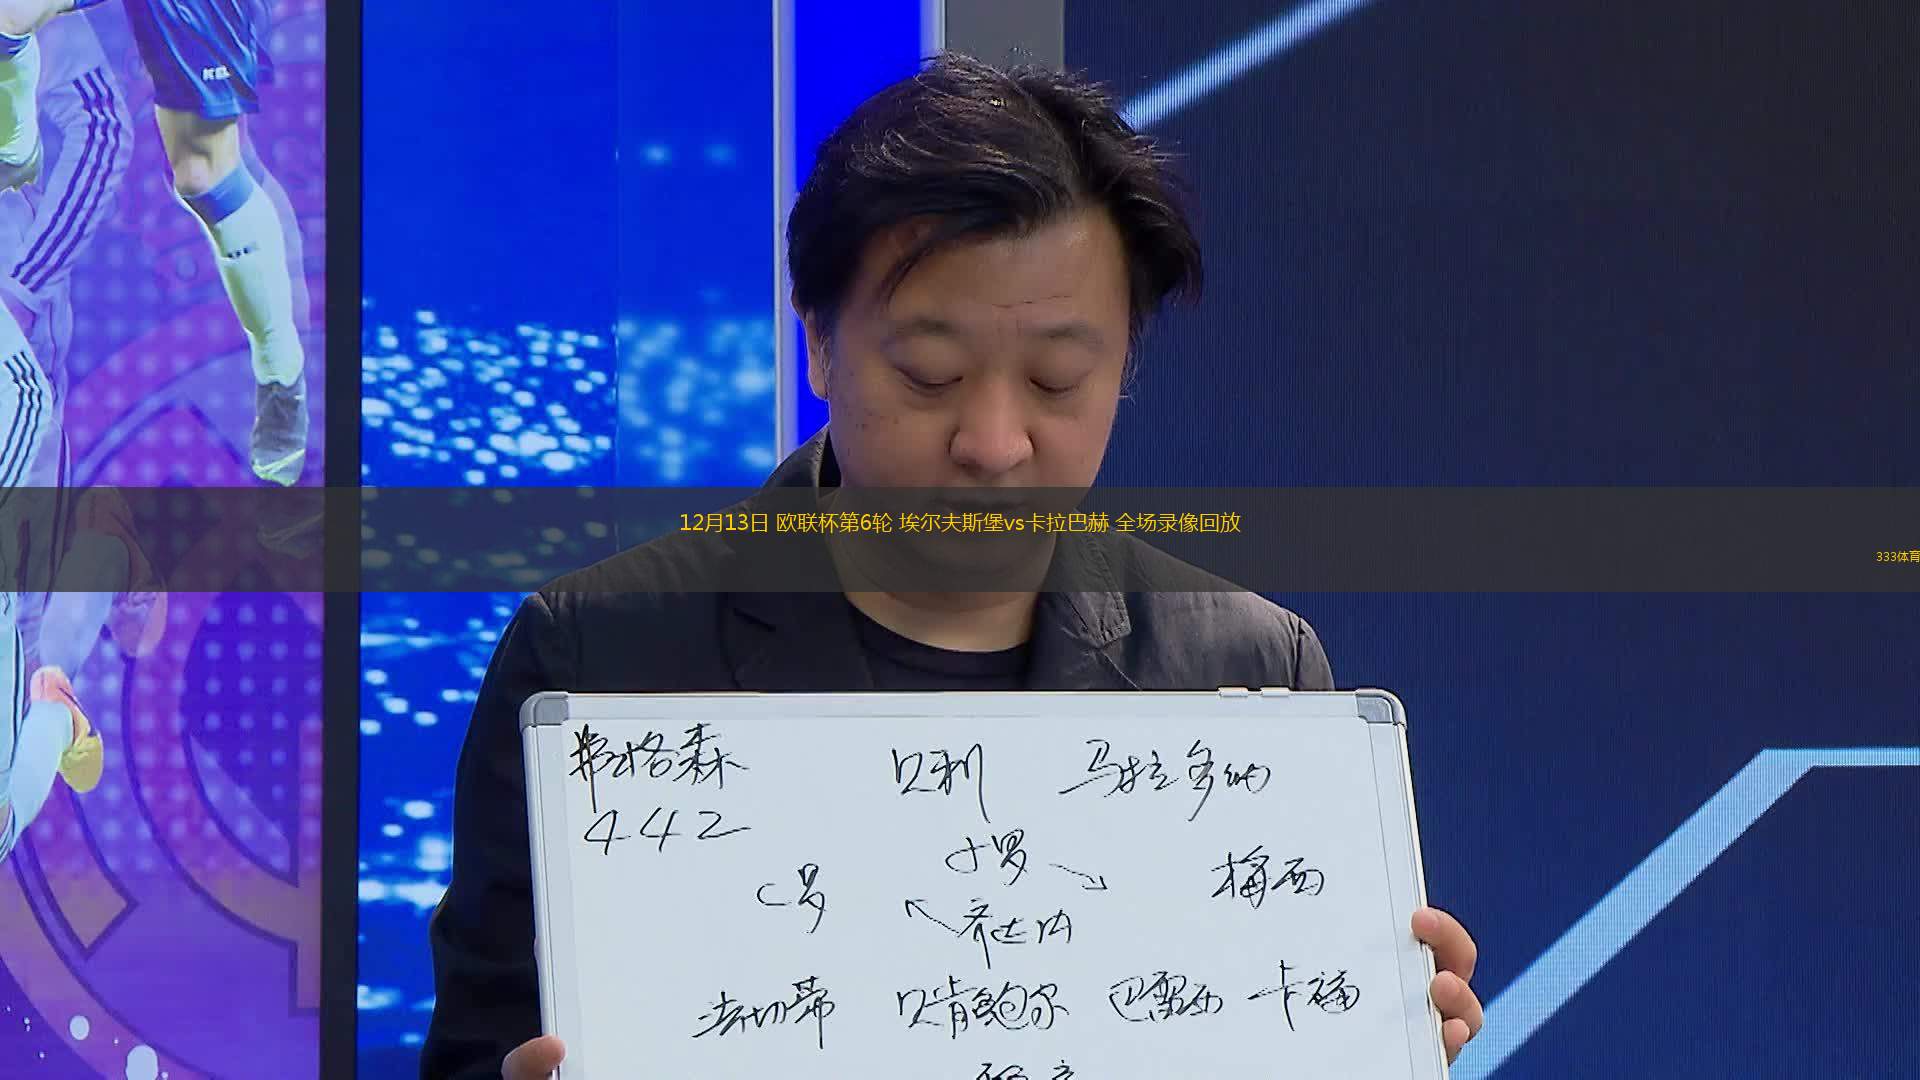 12月13日 欧联杯第6轮 埃尔夫斯堡vs卡拉巴赫 全场录像回放
333体育
弗格森 贝利 马拉多纳
442
C罗 小罗 梅西
齐达内
法切蒂 贝肯鲍尔 巴雷西 卡福